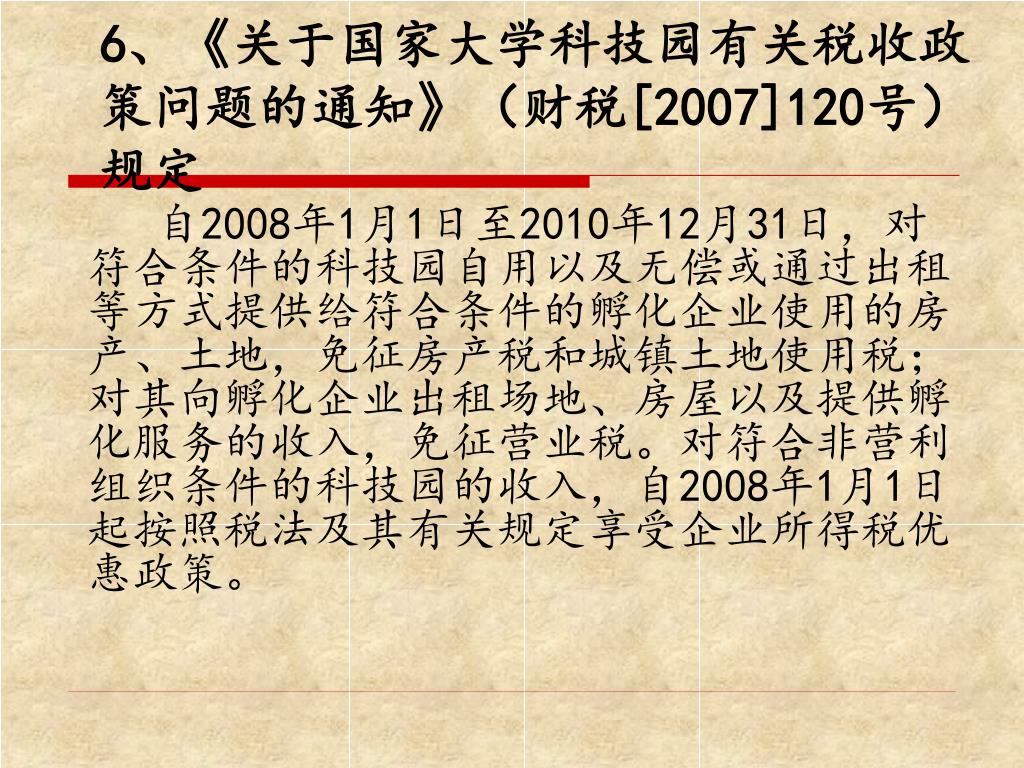 6、《关于国家大学科技园有关税收政
策问题的通知》（财税[2007]120号）
规定
自2008年1月1日至2010年12月31日，对
符合条件的科技园自用以及无偿或通过出租
等方式提供给符合条件的孵化企业使用的房
产、土地，免征房产税和城镇土地使用税；
对其向孵化企业出租场地、房屋以及提供孵
化服务的收入，免征营业税。对符合非营利
组织条件的科技园的收入，自2008年1月1日
起按照税法及其有关规定享受企业所得税优
惠政策。